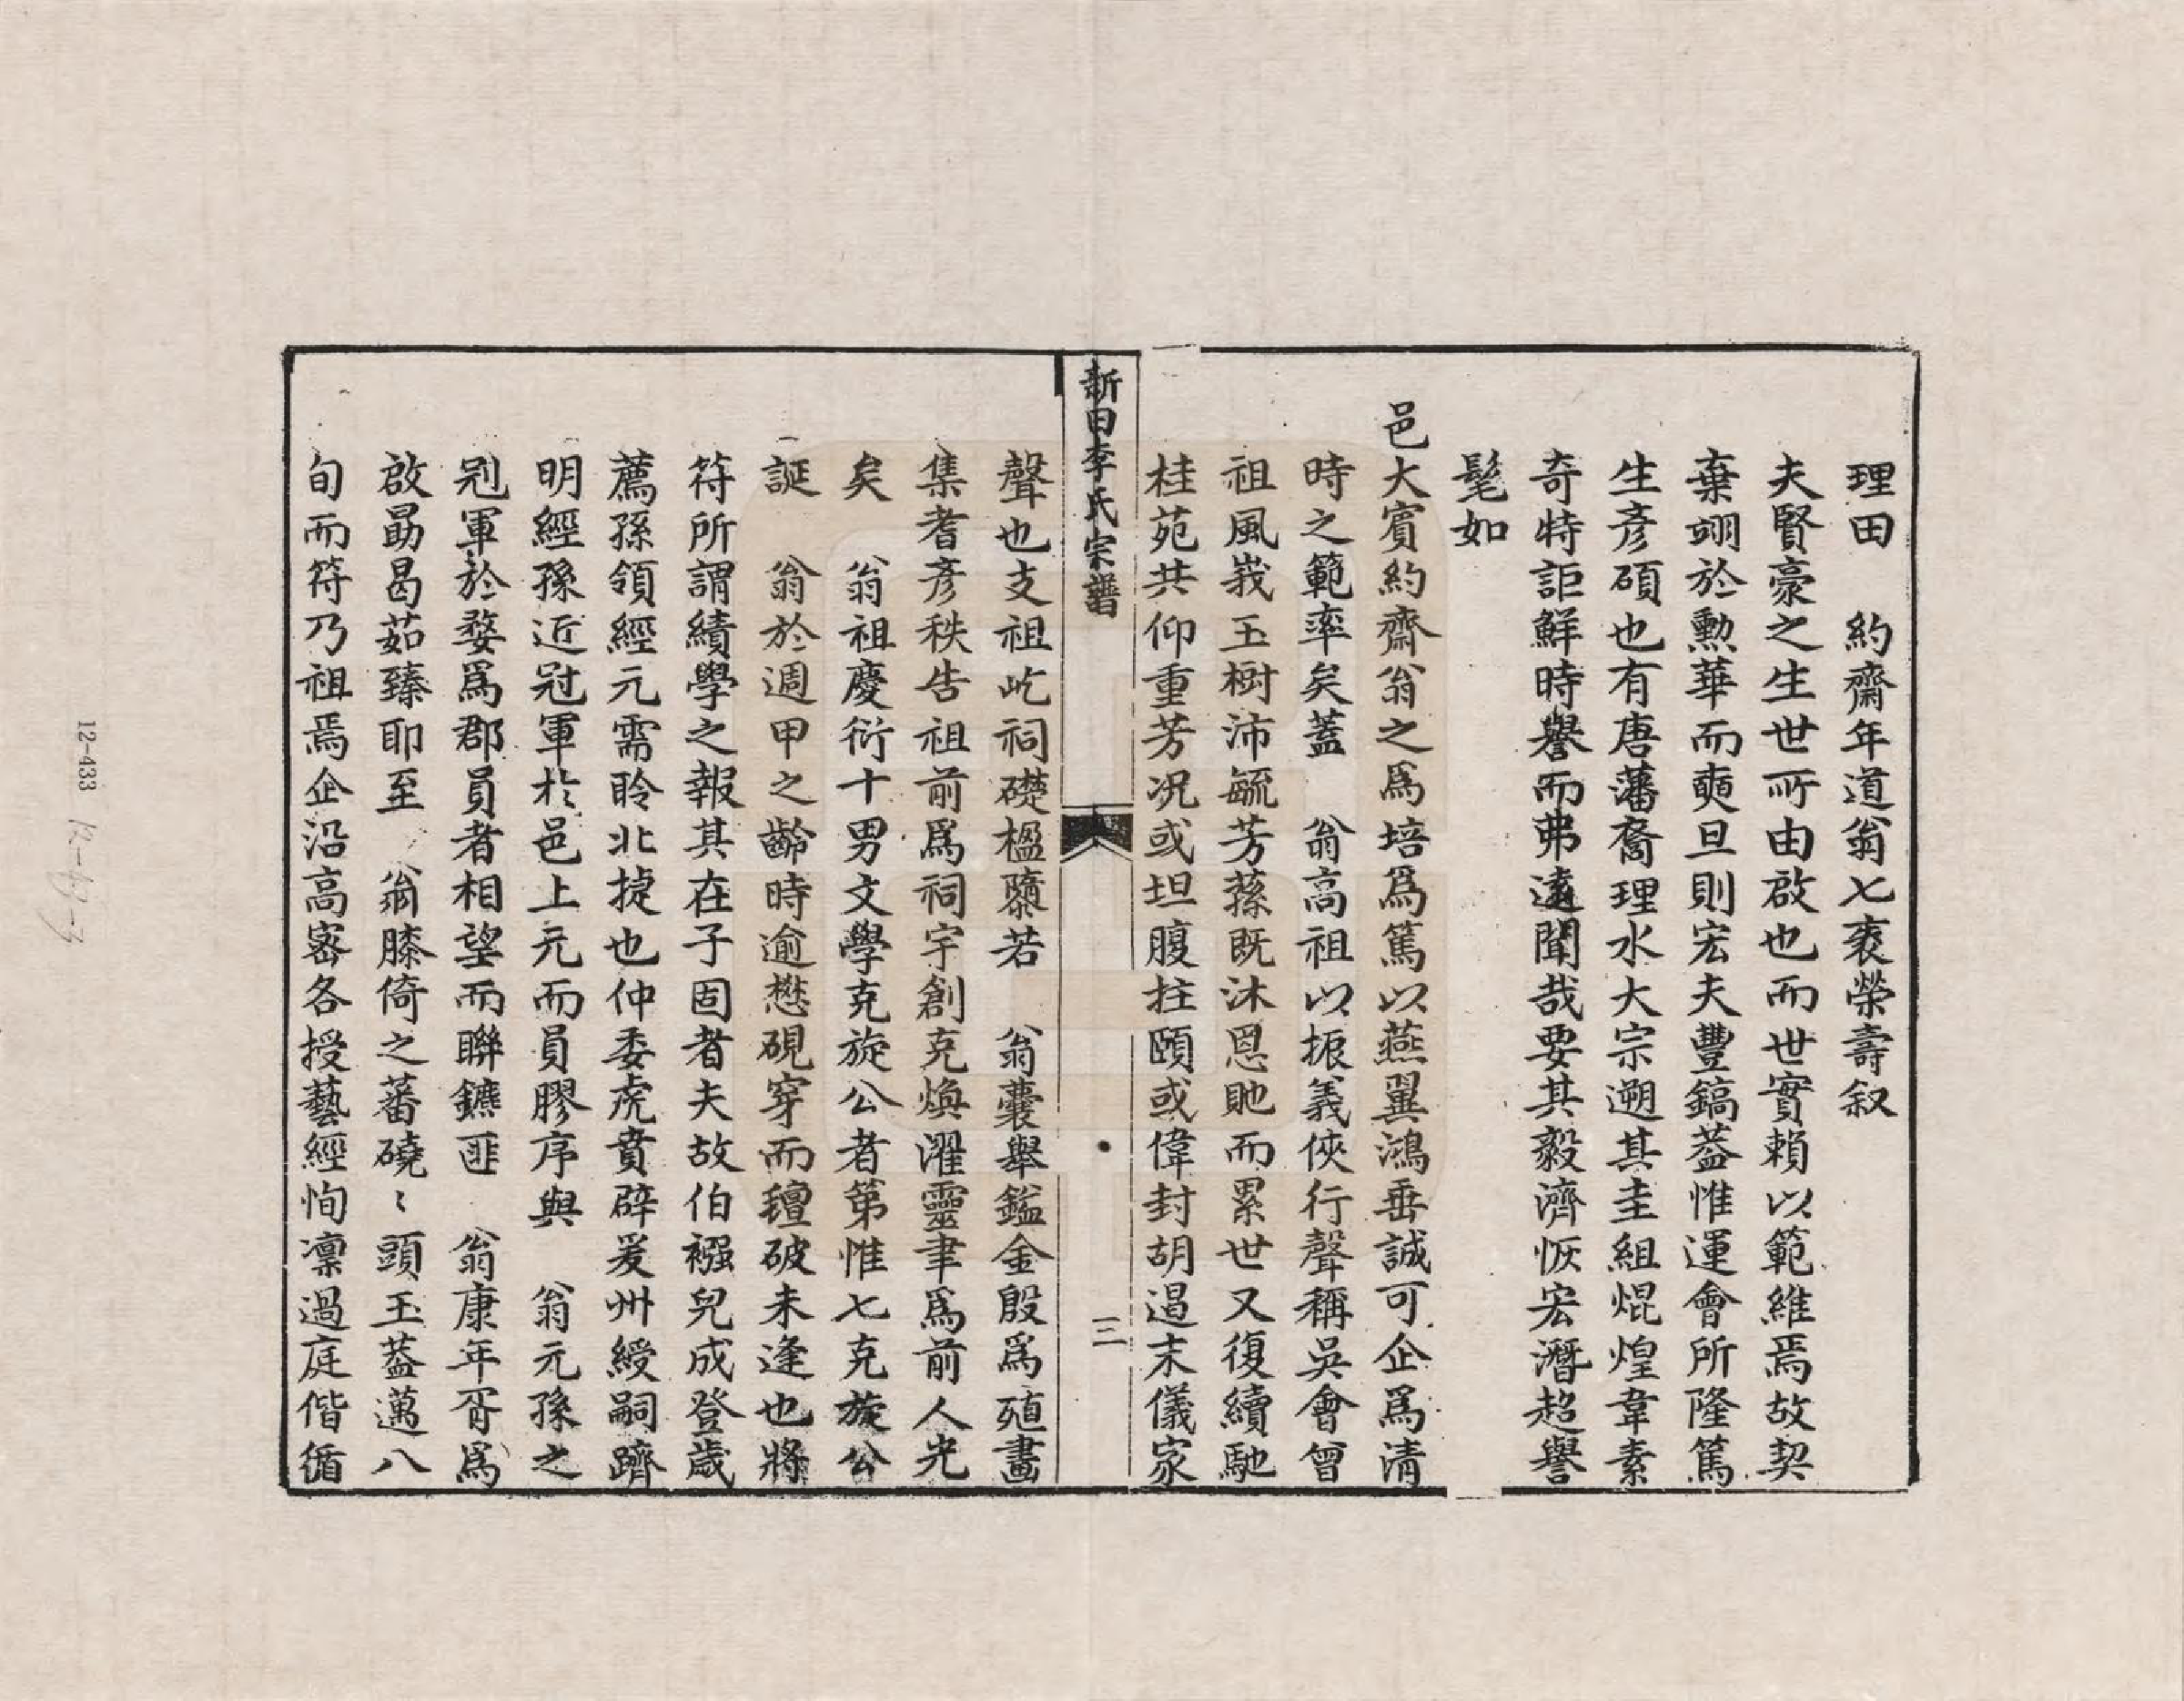 理田　約齋年道翁七袠榮壽叙
夫賢豪之生世所由啟也而世實賴以範維焉故契
棄翊於勲華而奭旦則宏夫豐鎬葢惟運會所隆篤
生彥碩也有唐藩裔理水大宗遡其圭組焜煌韋素
奇特詎鮮時譽而弗遠聞哉要其毅濟恢宏潛超譽
髦如
邑大賓約齋翁之爲培爲篤以燕翼鴻垂誠可企爲清
時之範率矣蓋　翁高祖以振義俠行聲稱吳會曾
祖風峩玉樹沛毓芳蓀既沐恩貤而累世又復續馳
桂苑共仰重芳况或坦腹拄頤或偉封胡遏末儀家
新田李氏宗譜
三
聲也支祖屹祠礎楹隳若　翁囊舉鎰金殷爲殖畫
集耆彥秩告祖前爲祠宇創克煥濯靈聿爲前人光
矣　翁祖慶衍十男文學克旋公者第惟七克旋公
誕　翁於週甲之齡時逾懋硯穿而氊破未逢也將
符所謂績學之報其在子固者夫故伯襁兒成登歲
薦孫領經元需聆北捷也仲委虎賁辟爰州綬嗣躋
明經孫近冠軍於邑上元而員膠序與　翁元孫之
冠軍於婺爲郡員者相望而聯鑣匪　翁康年胥爲
啟勗曷茹臻耶至　翁膝倚之蕃磽〻頭玉葢邁八
旬而符乃祖焉企沿高密各授藝經恂凛過庭偕循
12-433
12-43-3